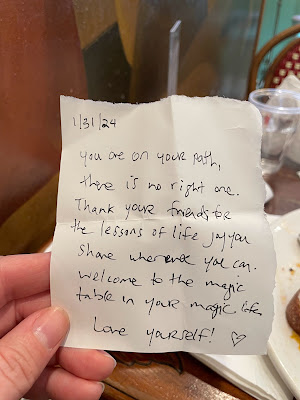 1/31/24
you are on your path,
there is no right one.
Thank your friends for
the lessons of life joy you
share wherever you can.
Welcome to the magic
table in your magic life,
Love yourself! ♡